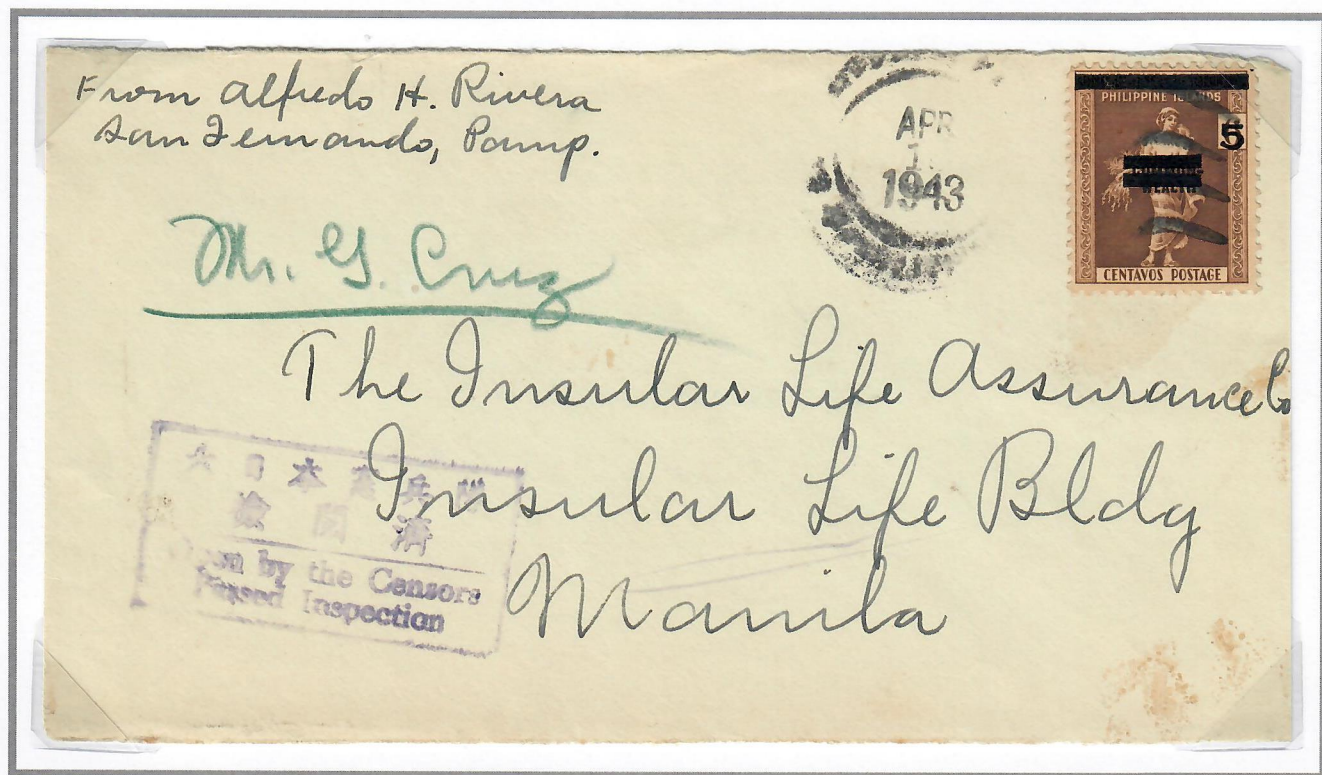 From Alfredo H. Rivera
San Fernando, Pamp.
APR
1943
PHILIPPINE ISLANDS
5
WEALTH
CENTAVOS POSTAGE
Mr. G. Cruz
The Insular Life Assurance Co
Insular Life Bldg
Manila
大日本憲兵隊
檢閲濟
by the Censors
Passed Inspection